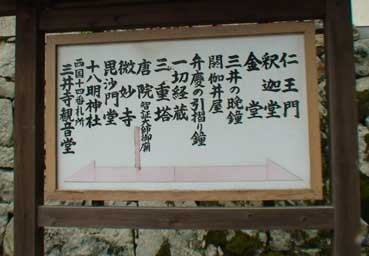 仁王門
釈迦堂
金堂
三井の晩鐘
閼伽井屋
弁慶の引摺り鐘
一切経蔵
三重塔
唐院 智証大師御廟
微妙寺
毘沙門堂
十八明神社
西国十四番札所
三井寺観音堂